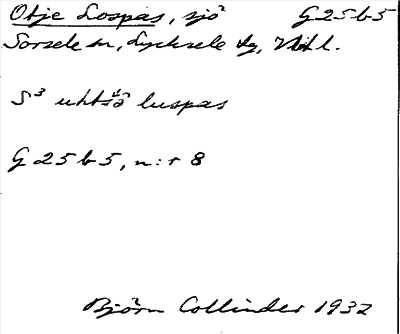 Otje Lospas, sjö G25b5
Sorsele sn, Lycksele lg, Vbtl.
S³ uhtsə̂ luspas
G 25 b 5, n:r 8
Björn Collinder 1932